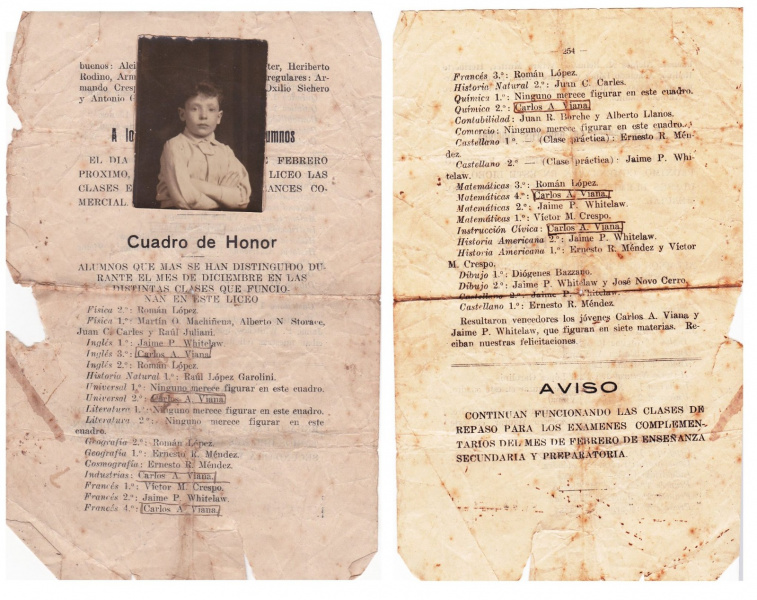 buenos: ter, Heriberto
Rodino, rregulares: Ar-
mando Oxilio Sichero
y Antonio
A lo umnos
EL DIA FEBRERO
PROXIMO, LICEO LAS
CLASES ANCES CO-
MERCIAL.
Cuadro de Honor
ALUMNOS QUE MAS SE HAN DISTINGUIDO DU-
RANTE EL MES DE DICIEMBRE EN LAS
DISTINTAS CLASES QUE FUNCIO-
NAN EN ESTE LICEO
Física 2.º: Román López.
Física 1.º: Martín O. Machiñena, Alberto N. Storace,
Juan C. Carles y Raúl Juliani.
Inglés 1.º: Jaime P. Whitelaw.
Inglés 3.º: Carlos A. Viana.
Inglés 2.º: Román López.
Historia Natural 1.º: Raúl López Garolini.
Universal 1.º: Ninguno merece figurar en este cuadro.
Universal 2.º: Carlos A. Viana.
Literatura 1.º: Ninguno merece figurar en este cuadro.
Literatura 2.º: Ninguno merece figurar en este
cuadro.
Geografía 2.º: Román López.
Geografía 1.º: Ernesto R. Méndez.
Cosmografía: Ernesto R. Méndez.
Industrias: Carlos A. Viana.
Francés 1.º: Víctor M. Crespo.
Francés 2.º: Jaime P. Whitelaw.
Francés 4.º: Carlos A. Viana.
— 254 —
Francés 3.º: Román López.
Historia Natural 2.º: Juan C. Carles.
Química 1.º: Ninguno merece figurar en este cuadro.
Química 2.º: Carlos A. Viana.
Contabilidad: Juan R. Borche y Alberto Llanos.
Comercio: Ninguno merece figurar en este cuadro.
Castellano 1.º — (Clase práctica): Ernesto R. Mén-
dez.
Castellano 2.º — (Clase práctica): Jaime P. Whi-
telaw.
Matemáticas 3.º: Román López.
Matemáticas 4.º: Carlos A. Viana.
Matemáticas 2.º: Jaime P. Whitelaw.
Matemáticas 1.º: Víctor M. Crespo.
Instrucción Cívica: Carlos A. Viana.
Historia Americana 2.º: Jaime P. Whitelaw.
Historia Americana 1.º: Ernesto R. Méndez y Víctor
M. Crespo.
Dibujo 1.º: Diógenes Bazzano.
Dibujo 2.º: Jaime P. Whitelaw y José Novo Cerro.
Castellano 2.º: Jaime P. Whitelaw.
Castellano 1.º: Ernesto R. Méndez.
Resultaron vencedores los jóvenes Carlos A. Viana y
Jaime P. Whitelaw, que figuran en siete materias. Re-
ciban nuestras felicitaciones.
AVISO
CONTINUAN FUNCIONANDO LAS CLASES DE
REPASO PARA LOS EXAMENES COMPLEMEN-
TARIOS DEL MES DE FEBRERO DE ENSEÑANZA
SECUNDARIA Y PREPARATORIA.